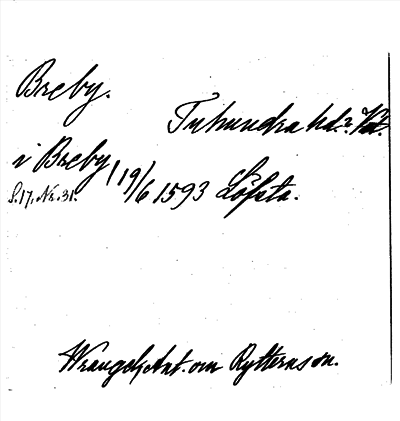 Breby.
Tuhundra hd.
i Breby 19/6 1593 Löfsta.
S.17. Nr. 31.
Wrangel, Ant. om Rytterns sn.